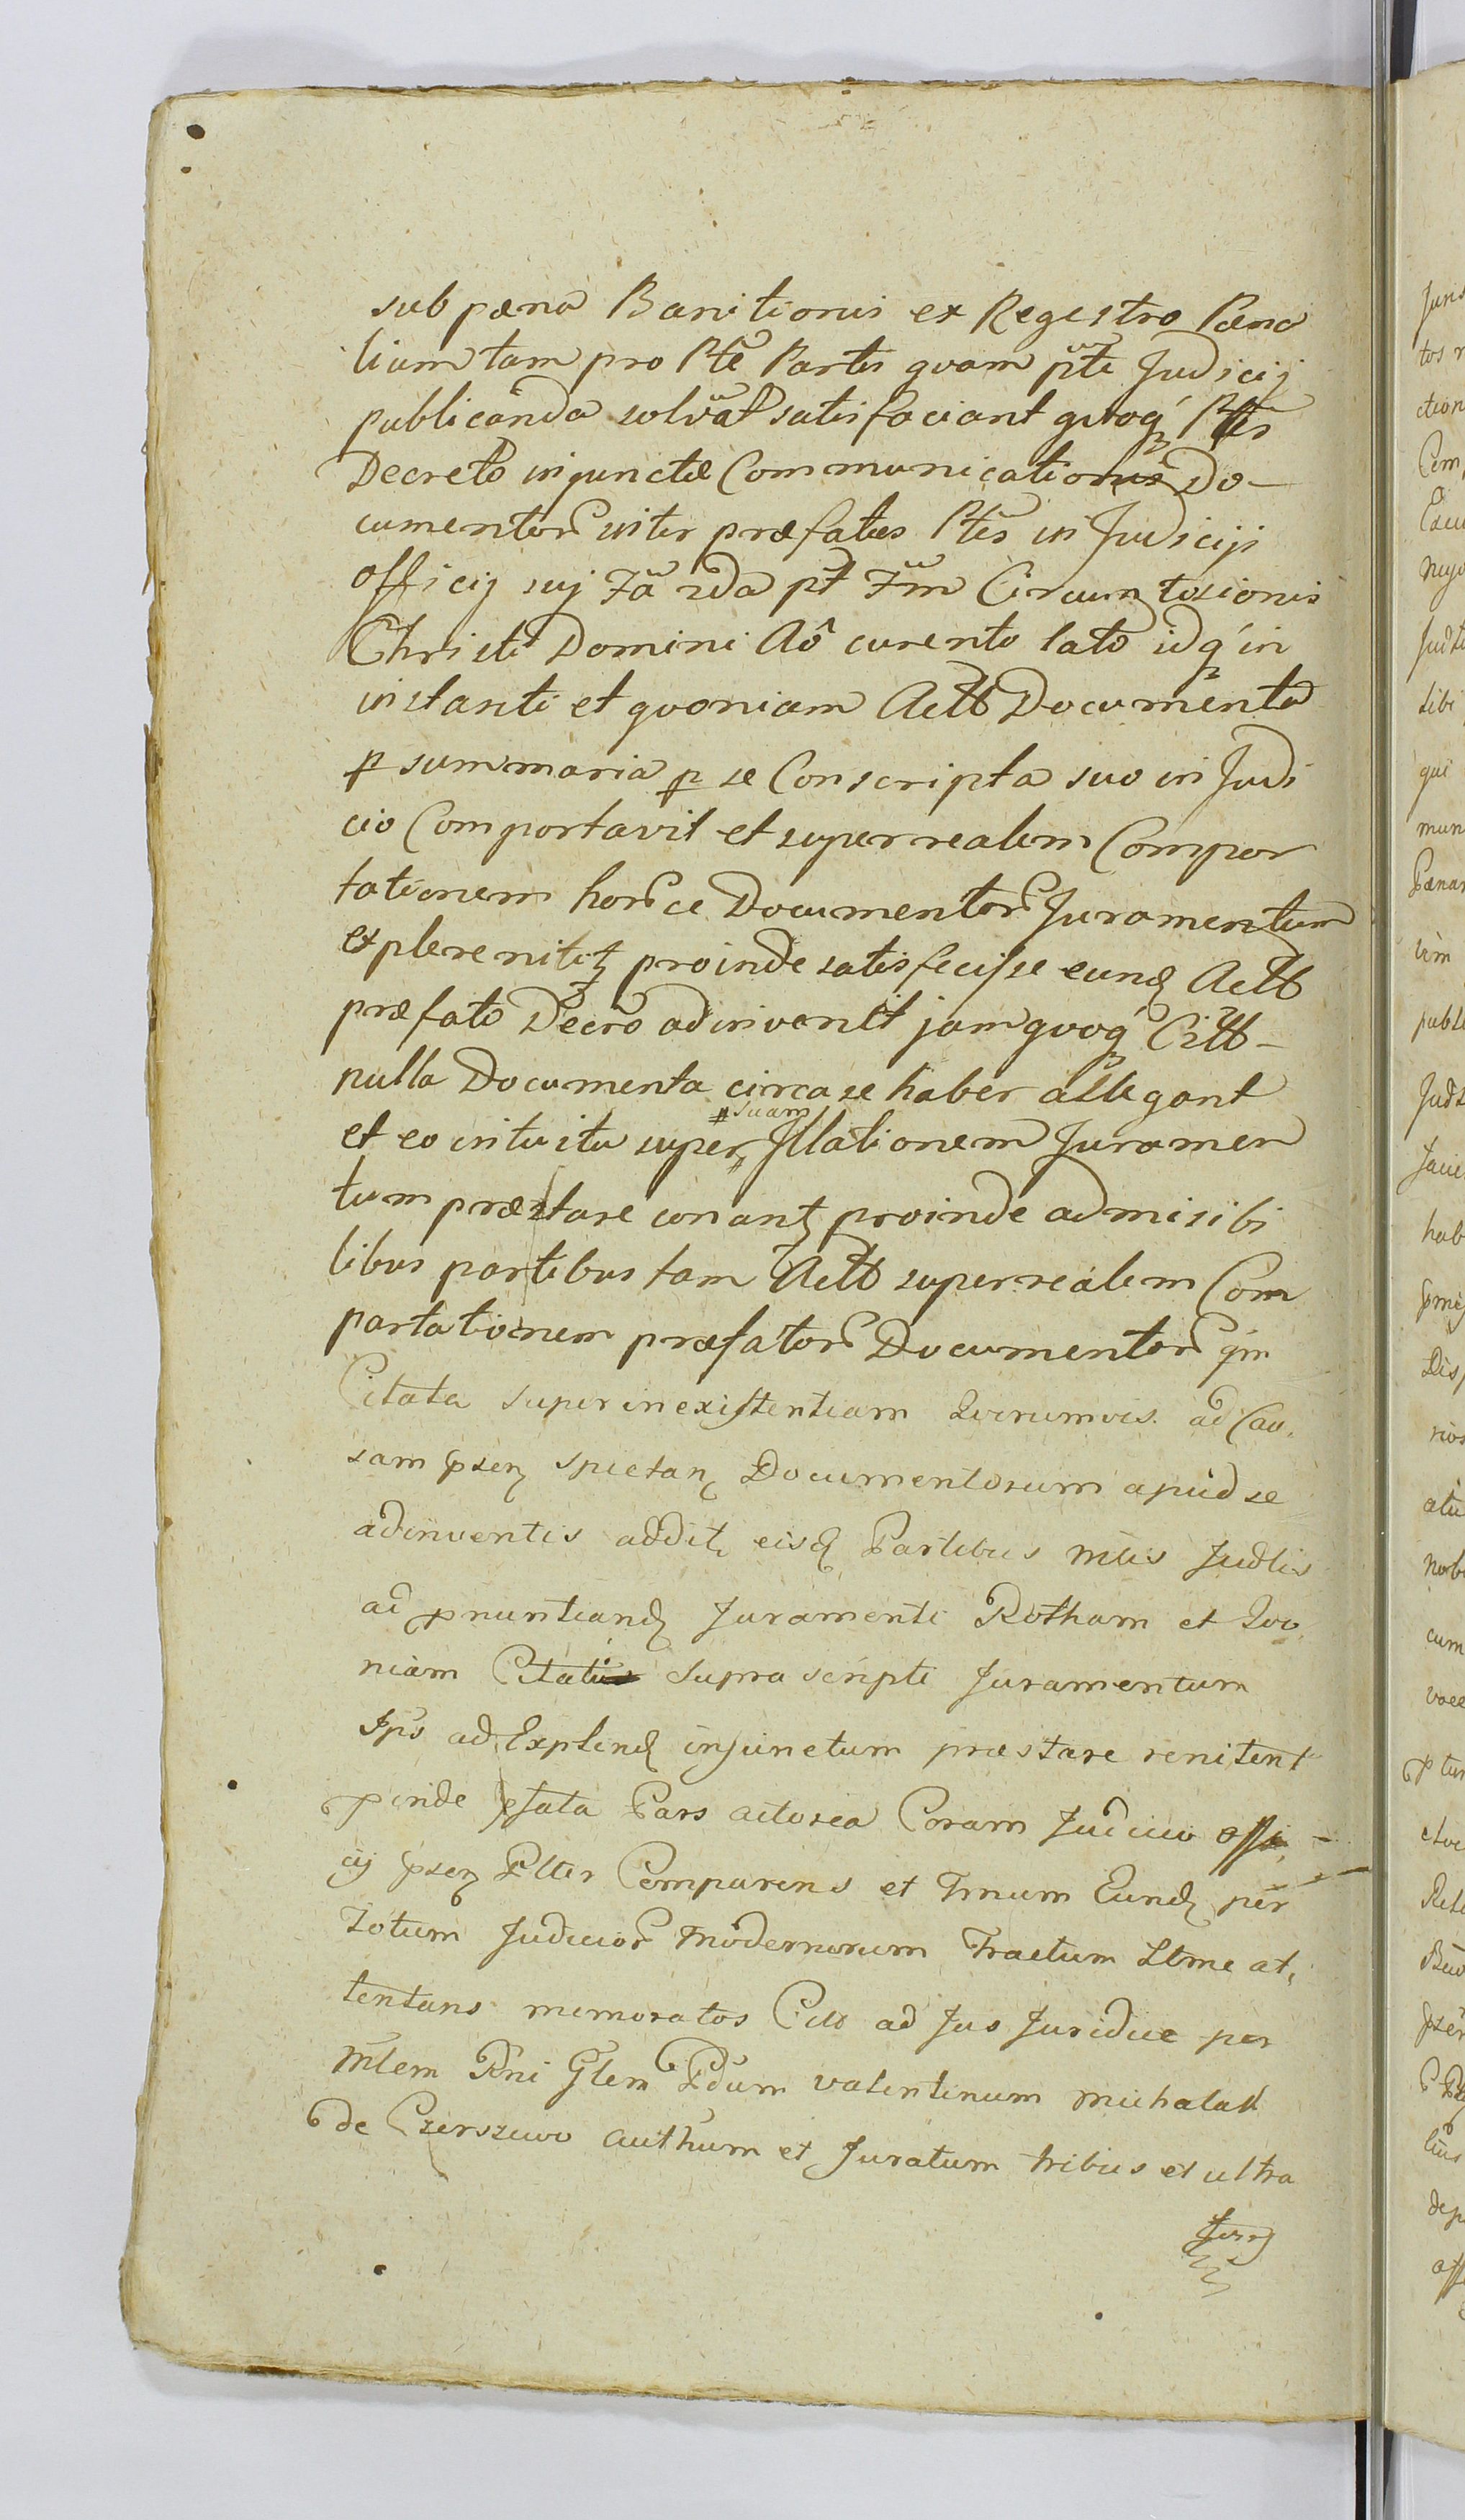 sub pœna Banitionis ex Regestro Pœna
lium tam pro Pte Partis quam pte Judicij
publicanda solvat satisfaciant quoq Ptes
Decreto injunctæ Communicationis Do-
cumentor inter præfatas Ptes in Judicijs
officij suj Fa 2da pt Fm Circumcisionis
Christi Domini Ao curento lato idq in
instanti et quoniam Actt Documenta
p summaria p se Conscripta suo in Judi
cio Comportavit et super realem Compor
tationem horce Documentor Juramentum
explere nitit proinde satisfecisse eund Actt
præfato Decro adinvenit jam quoq Citt-
nulla Documenta circa se haber allegant
et eo intuitu super suam Illationem Juramen
tum præstare conant proinde admisibi
libus partibus tam Actt super realem Com
portationem præfator Documentor qm
Citata super inexistentiam Quorumvis ad Cau,
sam psen spectan Documentorum apud se
adinventis addit eisd Partibus Mlis Judlis
ad pnuntiand Juramenti Rotham et Quo,
niam Citati supra scripti Juramentum
Ips ad Explend injunctum præstare renitent
pinde pfata Pars actorea Coram Judicio offi,
cij psen Plter Comparens et Tmum Eund per
Totum Judicior Modernorum Tractum Ltme at,
tentans memoratos Citt ad Jus Juridice per
Mlem Rni Glem Pdum Valentinum Michalak
de Czerszewo authum et Juratum tribus et ultra